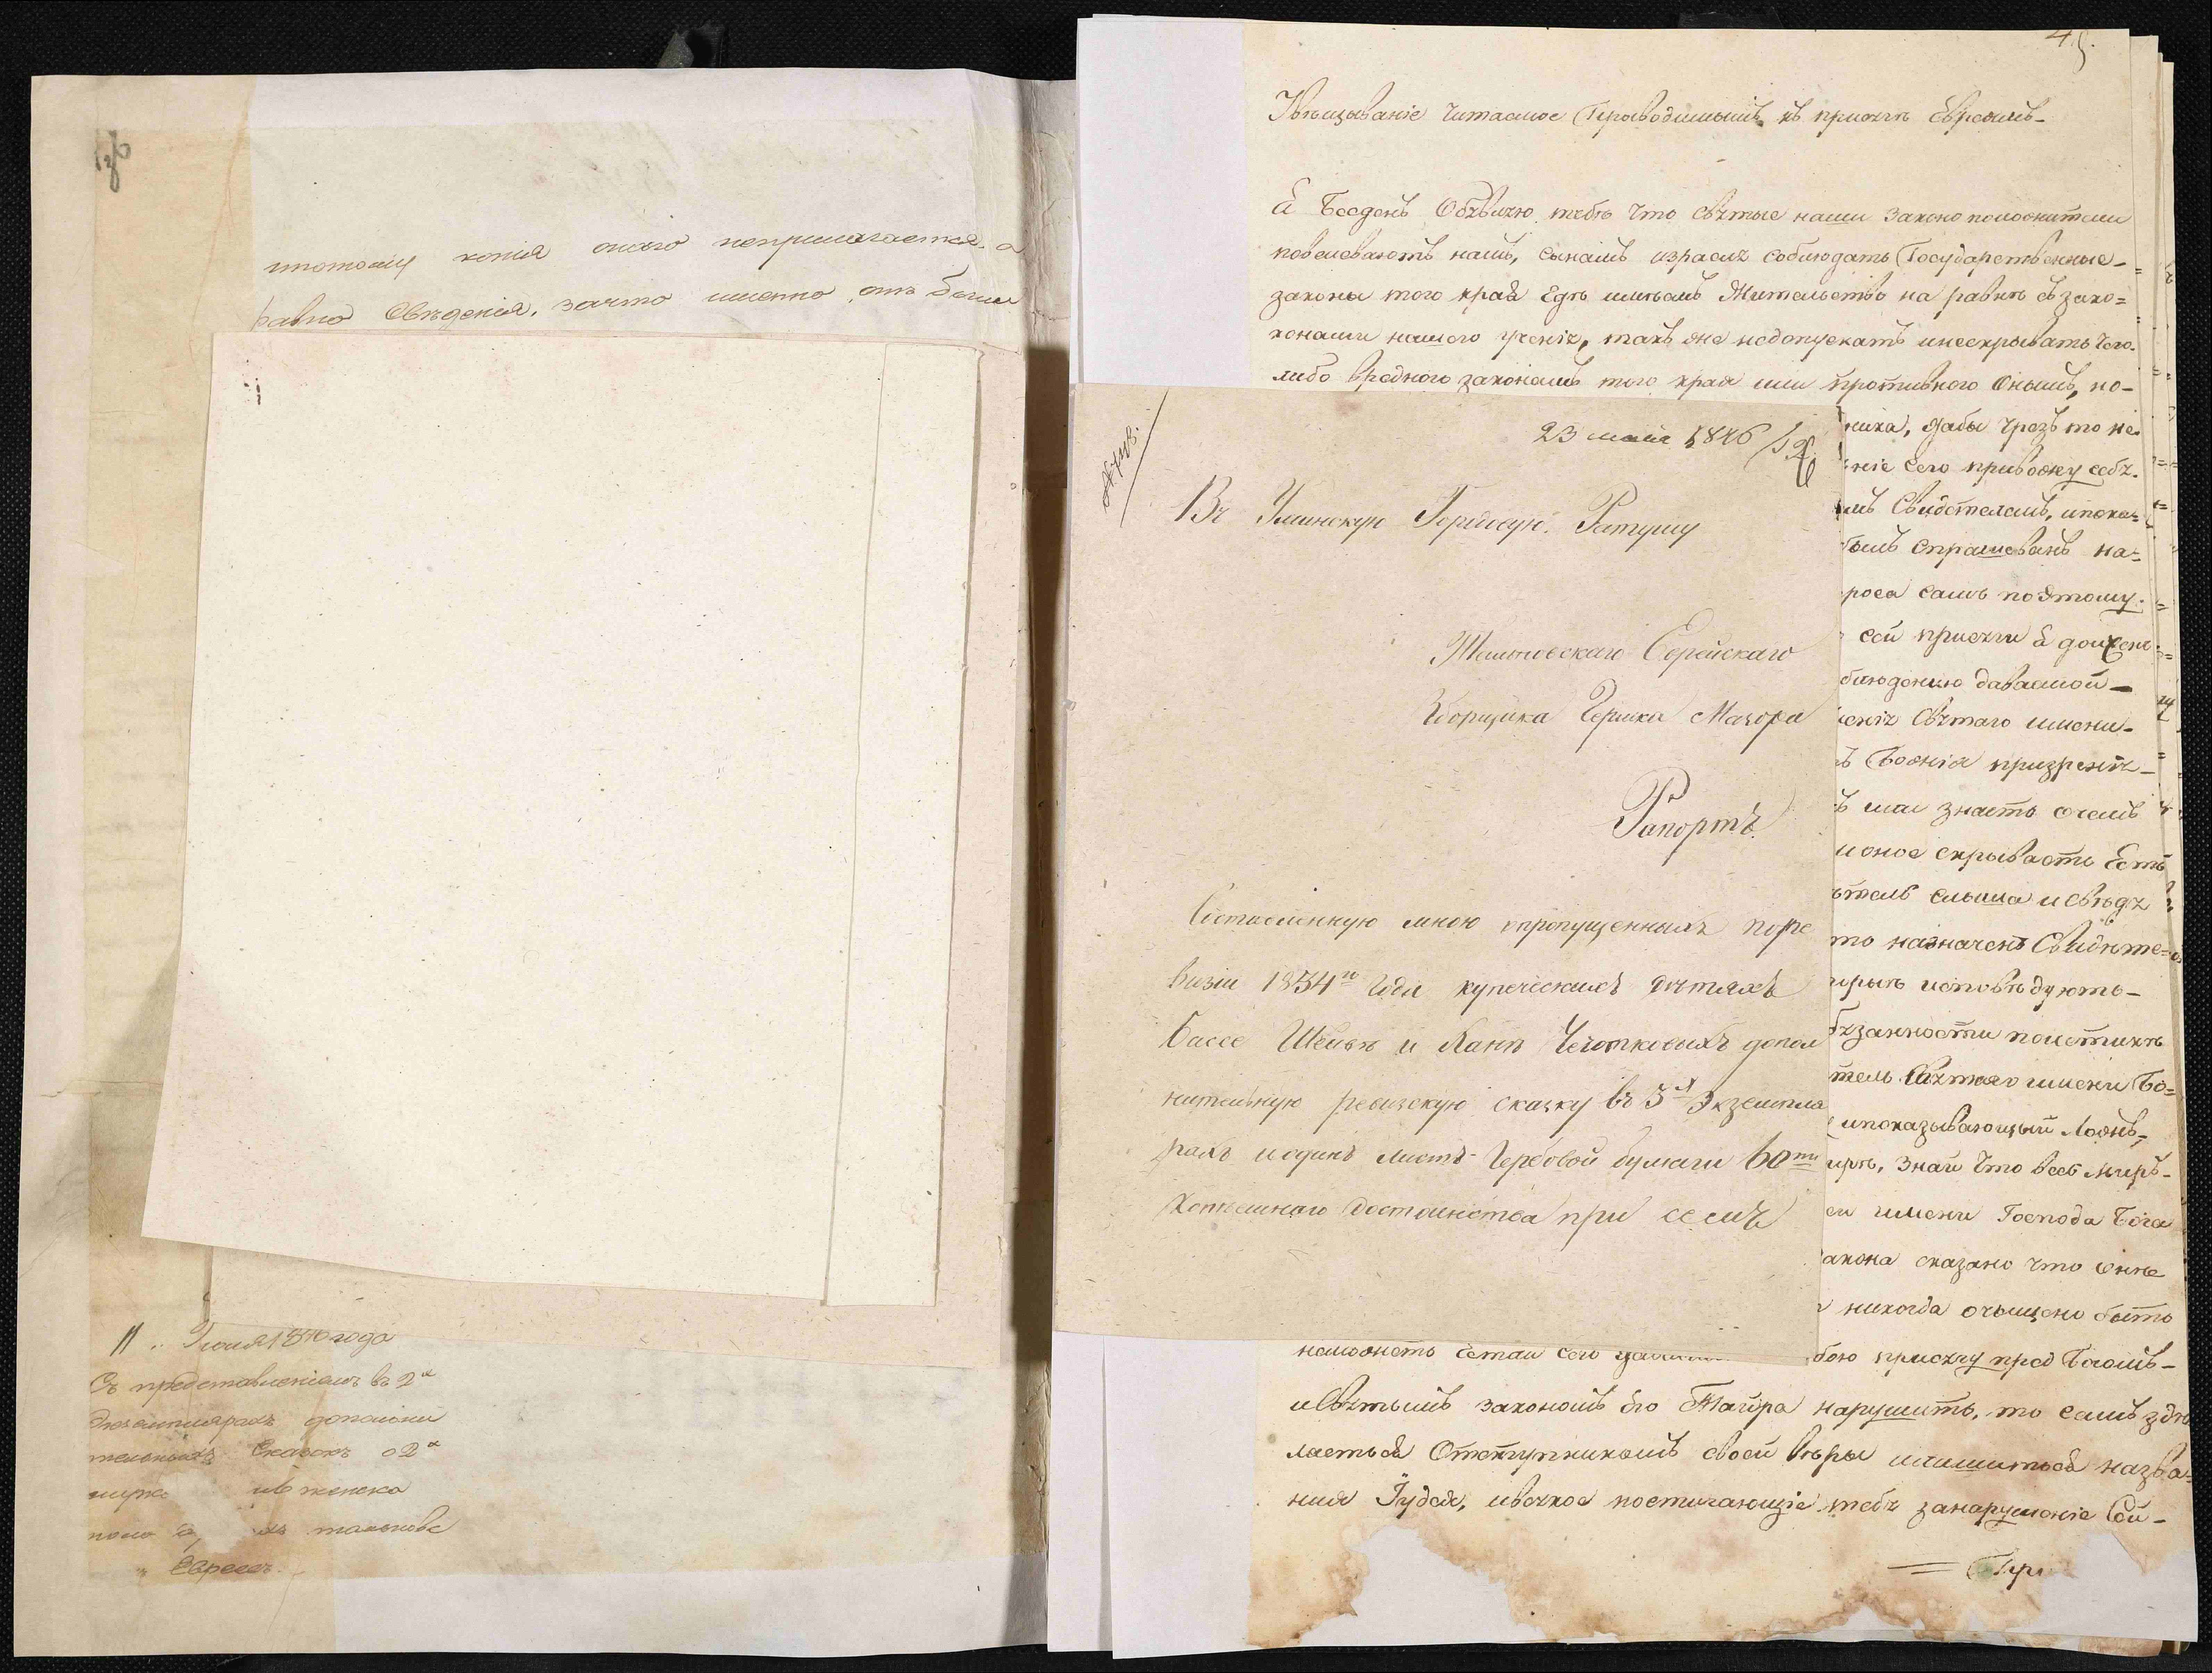 потому копія онаго неприлагается а
равно Свѣденія, зачто именно отъ были
11 Іюля 1850 года
Съ представленіемъ въ 2х
Экземплярахъ дополни
тельныхъ Сказокъ о 2х
мужс женска
пола
Евреевъ
45.
Увѣщываніе читаемое Проводимымъ къ присягѣ Евреямъ
Я Бесденъ Объявляю тебѣ что святые наши законоположители
повелеваютъ намъ, сынамъ израиля соблюдать Государственные
законы того края Едѣ имѣемъ Жительство на равнѣ съ зако=
конами нашего ученія, такъ же недопускать инескрывать чего
либо вреднаго законамъ того края или противнаго Онымъ, но-
ника, дабы чрезъ то не
ніе сего привожу себя
мъ Свидетелемъ, ипока=
былъ спрашеванъ на=
роса самъ поэтому
сей присяги я долженъ
блюдению даваемой
еніе святаго имени
Божія призренія
или знаетъ очемъ
и оное скрываетъ Есть
ѣтель слыша и свѣдя
то назначенъ Свидѣте=
торыѣ исповѣдуютъ
бязанности поистинѣ
тель святаго имени Бо=
ипоказывающый ложъ
ирѣ, знай что весь миръ
ей имени Господа Бога
акона сказано что онъ не
никогда очыщено быть
неможетъ Естли сего
бою присягу пред Богомъ
исвятымъ закономъ Его Тагора нарушить, то самъ здѣ
лаеться Отступникомъ своей вѣры илишиться назва=
ния Іудея, ивсякое постигающіе тебя занарушеніе Сей
= При
23 мая 1846
Въ Уминскую Городскую Ратушу
Еврейскаго
Зборщика Гершка Мазора
Рапортъ
Составленную мною опропущенныхъ поре
визіи 1834го Года купеческихъ дѣтяхъ
Бассе Шейвѣ и Ханѣ Чечотковыхъ допол
нительную ревизскую сказку въ 3х Экземпля
рахъ иодинъ листъ Гербовой бумаги 60ти
Копѣешнаго достоинства при семъ